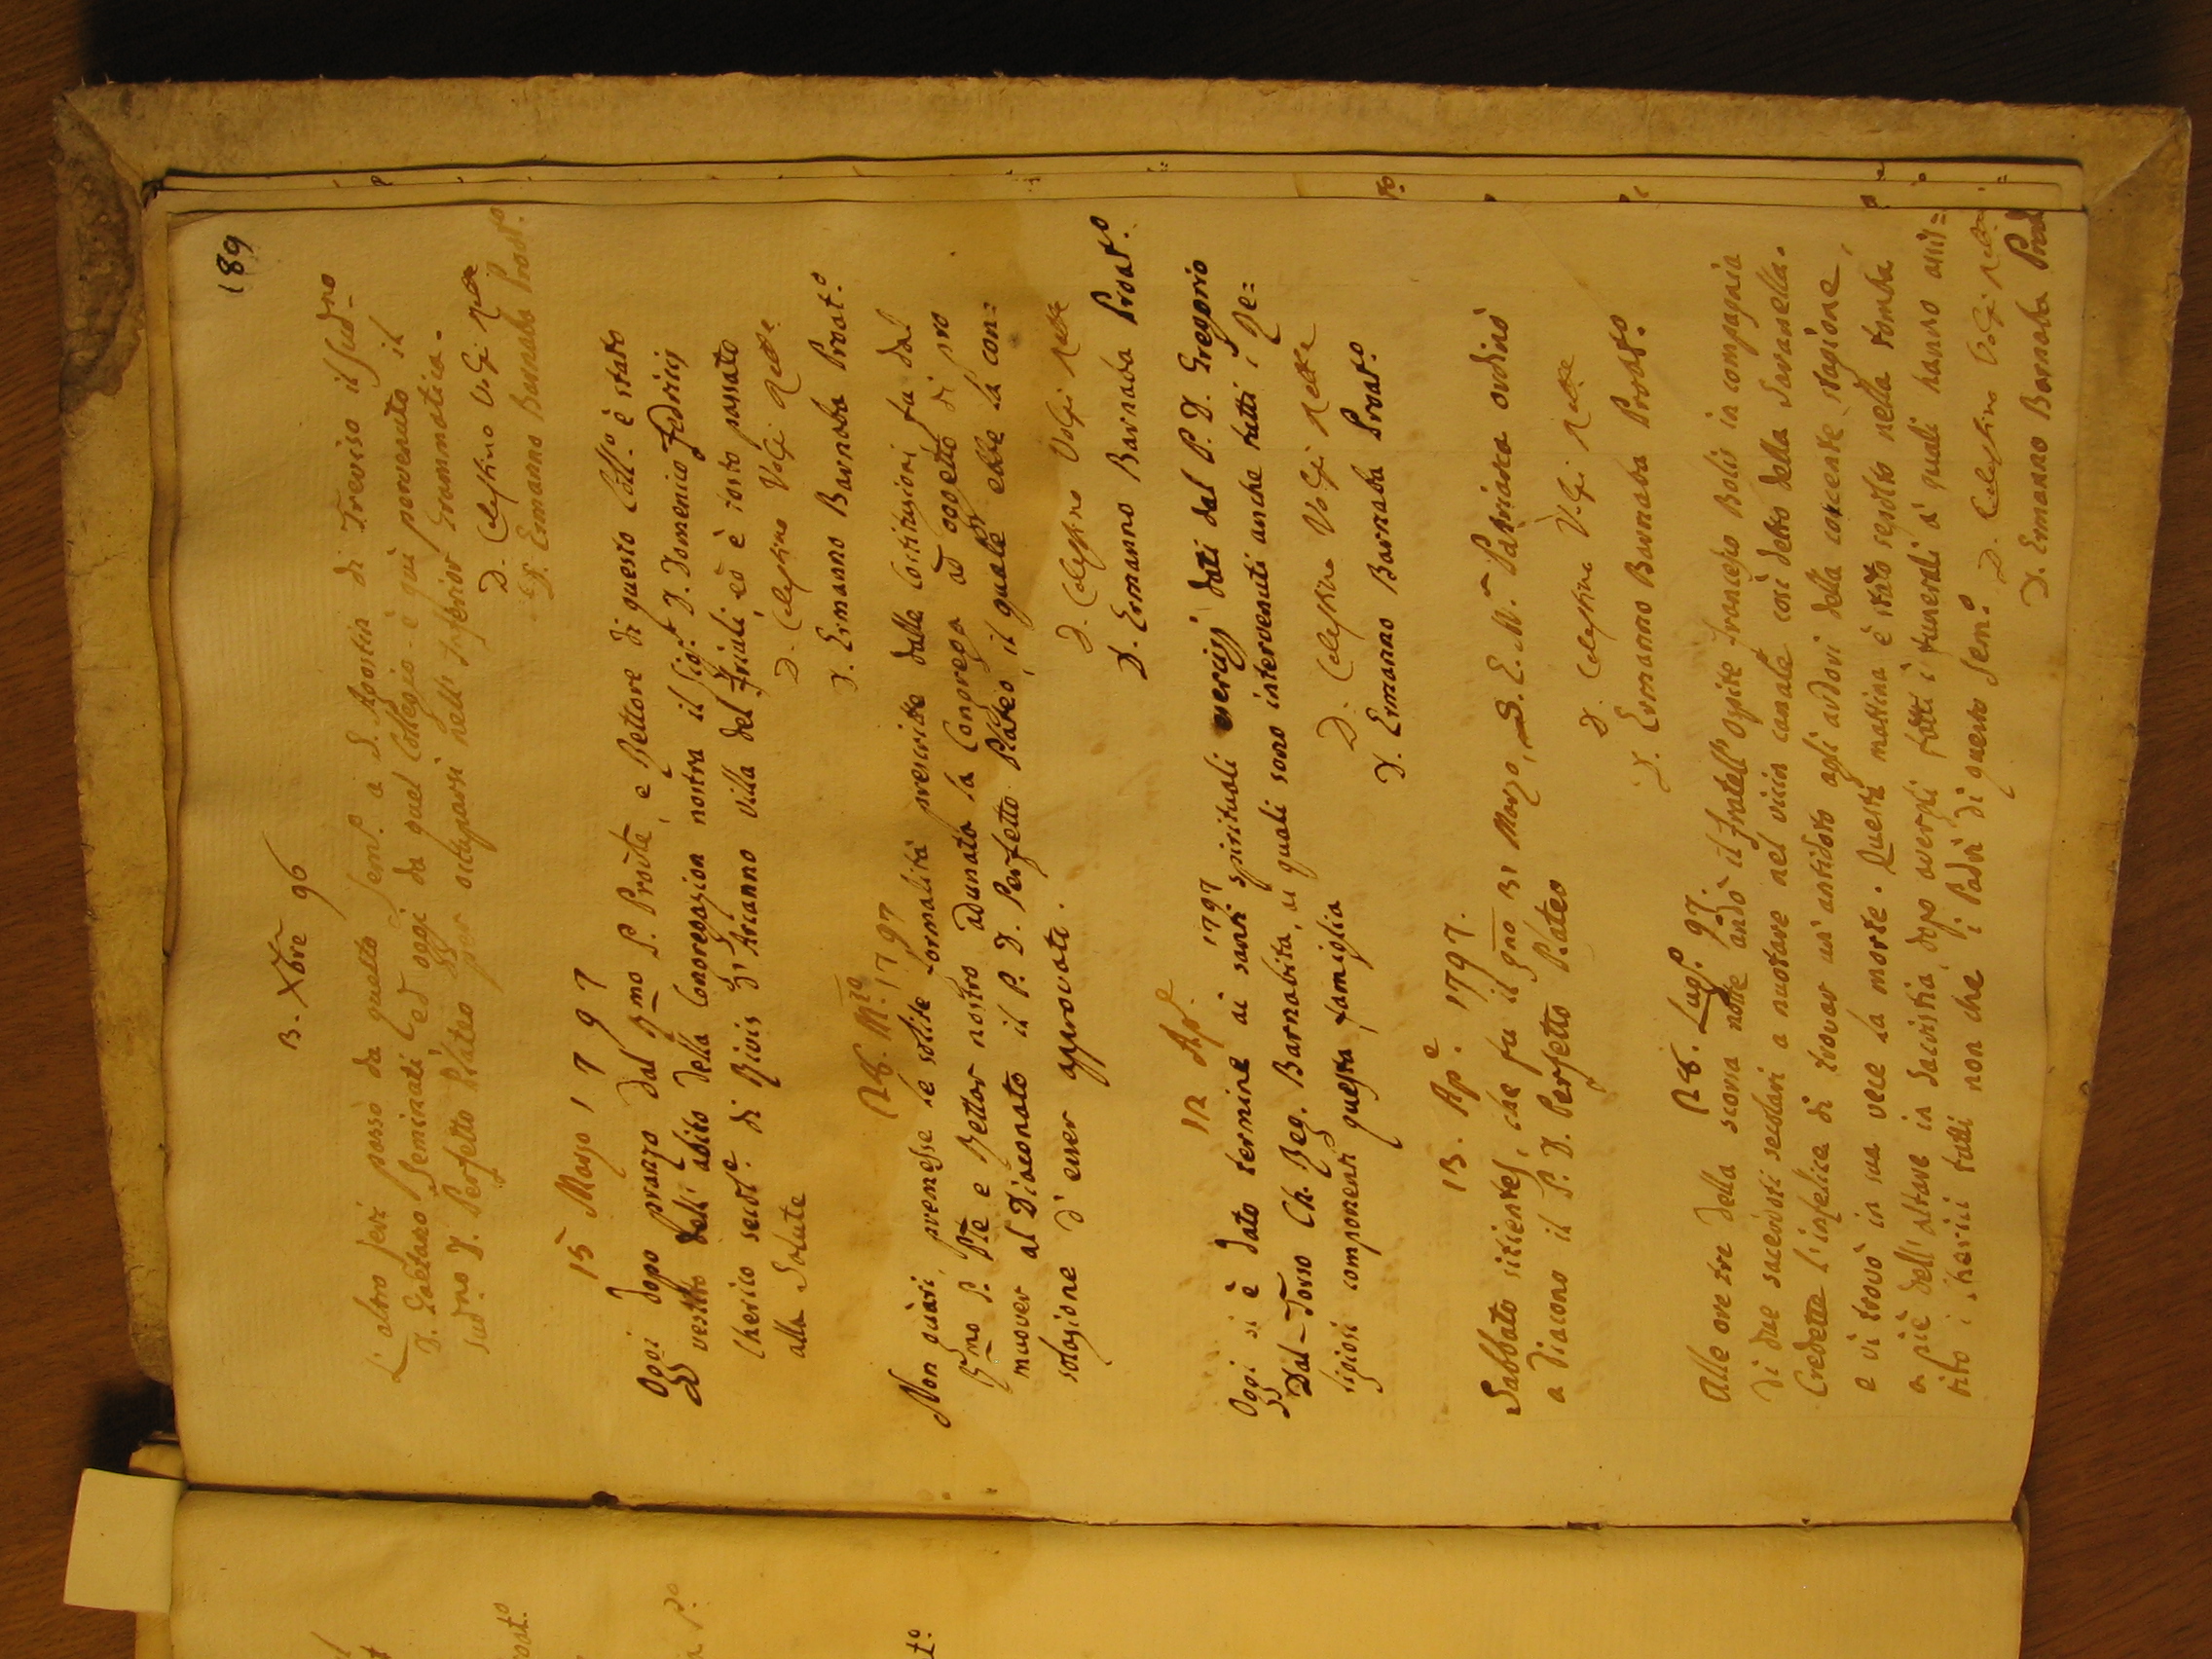 189
3. Xbre 96
L'altro jeri passò da questo Sem.º a S. Agostin di Treviso il sud.no
D. Gaetano Seminati, ed oggi da quel Collegio è qui pervenuto il
sud.no D. Perfetto Plateo per occuparsi nell'inferior Grammatica.
D. Celestino Volpi Rett.e
D. Ermanno Barnaba Proat.o
15 Marzo 1797
Oggi dopo pranzo dal R.mo P. Proūte, e Rettore di questo Coll.o è stato
vestito dell'abito della Congregazion nostra il Sig.r D. Domenico Fedricis
Cherico secol.e di Rivis d'Arcanno villa del Friuli, ed è tosto passato
alla Salute
D. Celestino Volpi Rett.e
D. Ermanno Barnaba Proat.o
28. M.zo 1797
Non guari, premesse le solite formalità prescritte dalle Costituzioni fu dal
R.mo P. Pte e Rettor nostro adunata la Congrega ad oggetto di pro
muover al Diaconato il P. D. Perfetto Plateo, il quale ebbe la con=
solazione d'esser approvato.
D. Celestino Volpi Rett.e
D. Ermanno Barnaba Proat.o
12 Ap.e 1797
Oggi si è dato termine ai santi spirituali esercizj dati dal P. D. Gregorio
Dal-Torso Ch. Reg. Barnabita, ai quali sono intervenuti anche tutti i Re=
ligiosi componenti questa famiglia
D. Celestino Volpi Rett.e
D. Ermanno Barnaba Proat.o
13. Ap.e 1797.
Sabbato sitientes, che fu il gno 31 Marzo, S. E. M. Patriarca ordinò
a Diacono il P. D. Perfetto Plateo
D. Celestino Volpi Rett.e
D. Ermanno Barnaba Proat.o
28. Lug.o 97.
Alle ore tre della scorsa notte andò il fratell'Ospite Francesco Bolis in compagnia
di due sacerdoti secolari a nuotare nel vicin canale così detto della Savanella.
Credette l'infelice di trovar un'antidoto agli ardori della cocente stagione,
e vi trovò in sua vece la morte. Questa mattina è stato sepolto nella tomba
a piè dell'altare in sacristia, dopo avergli fatti i funerali a' quali hanno assis=
tito i cherici tutti non che i Padri di questo Sem.o
D. Celestino Volpi Rett.e
D. Ermanno Barnaba Proat